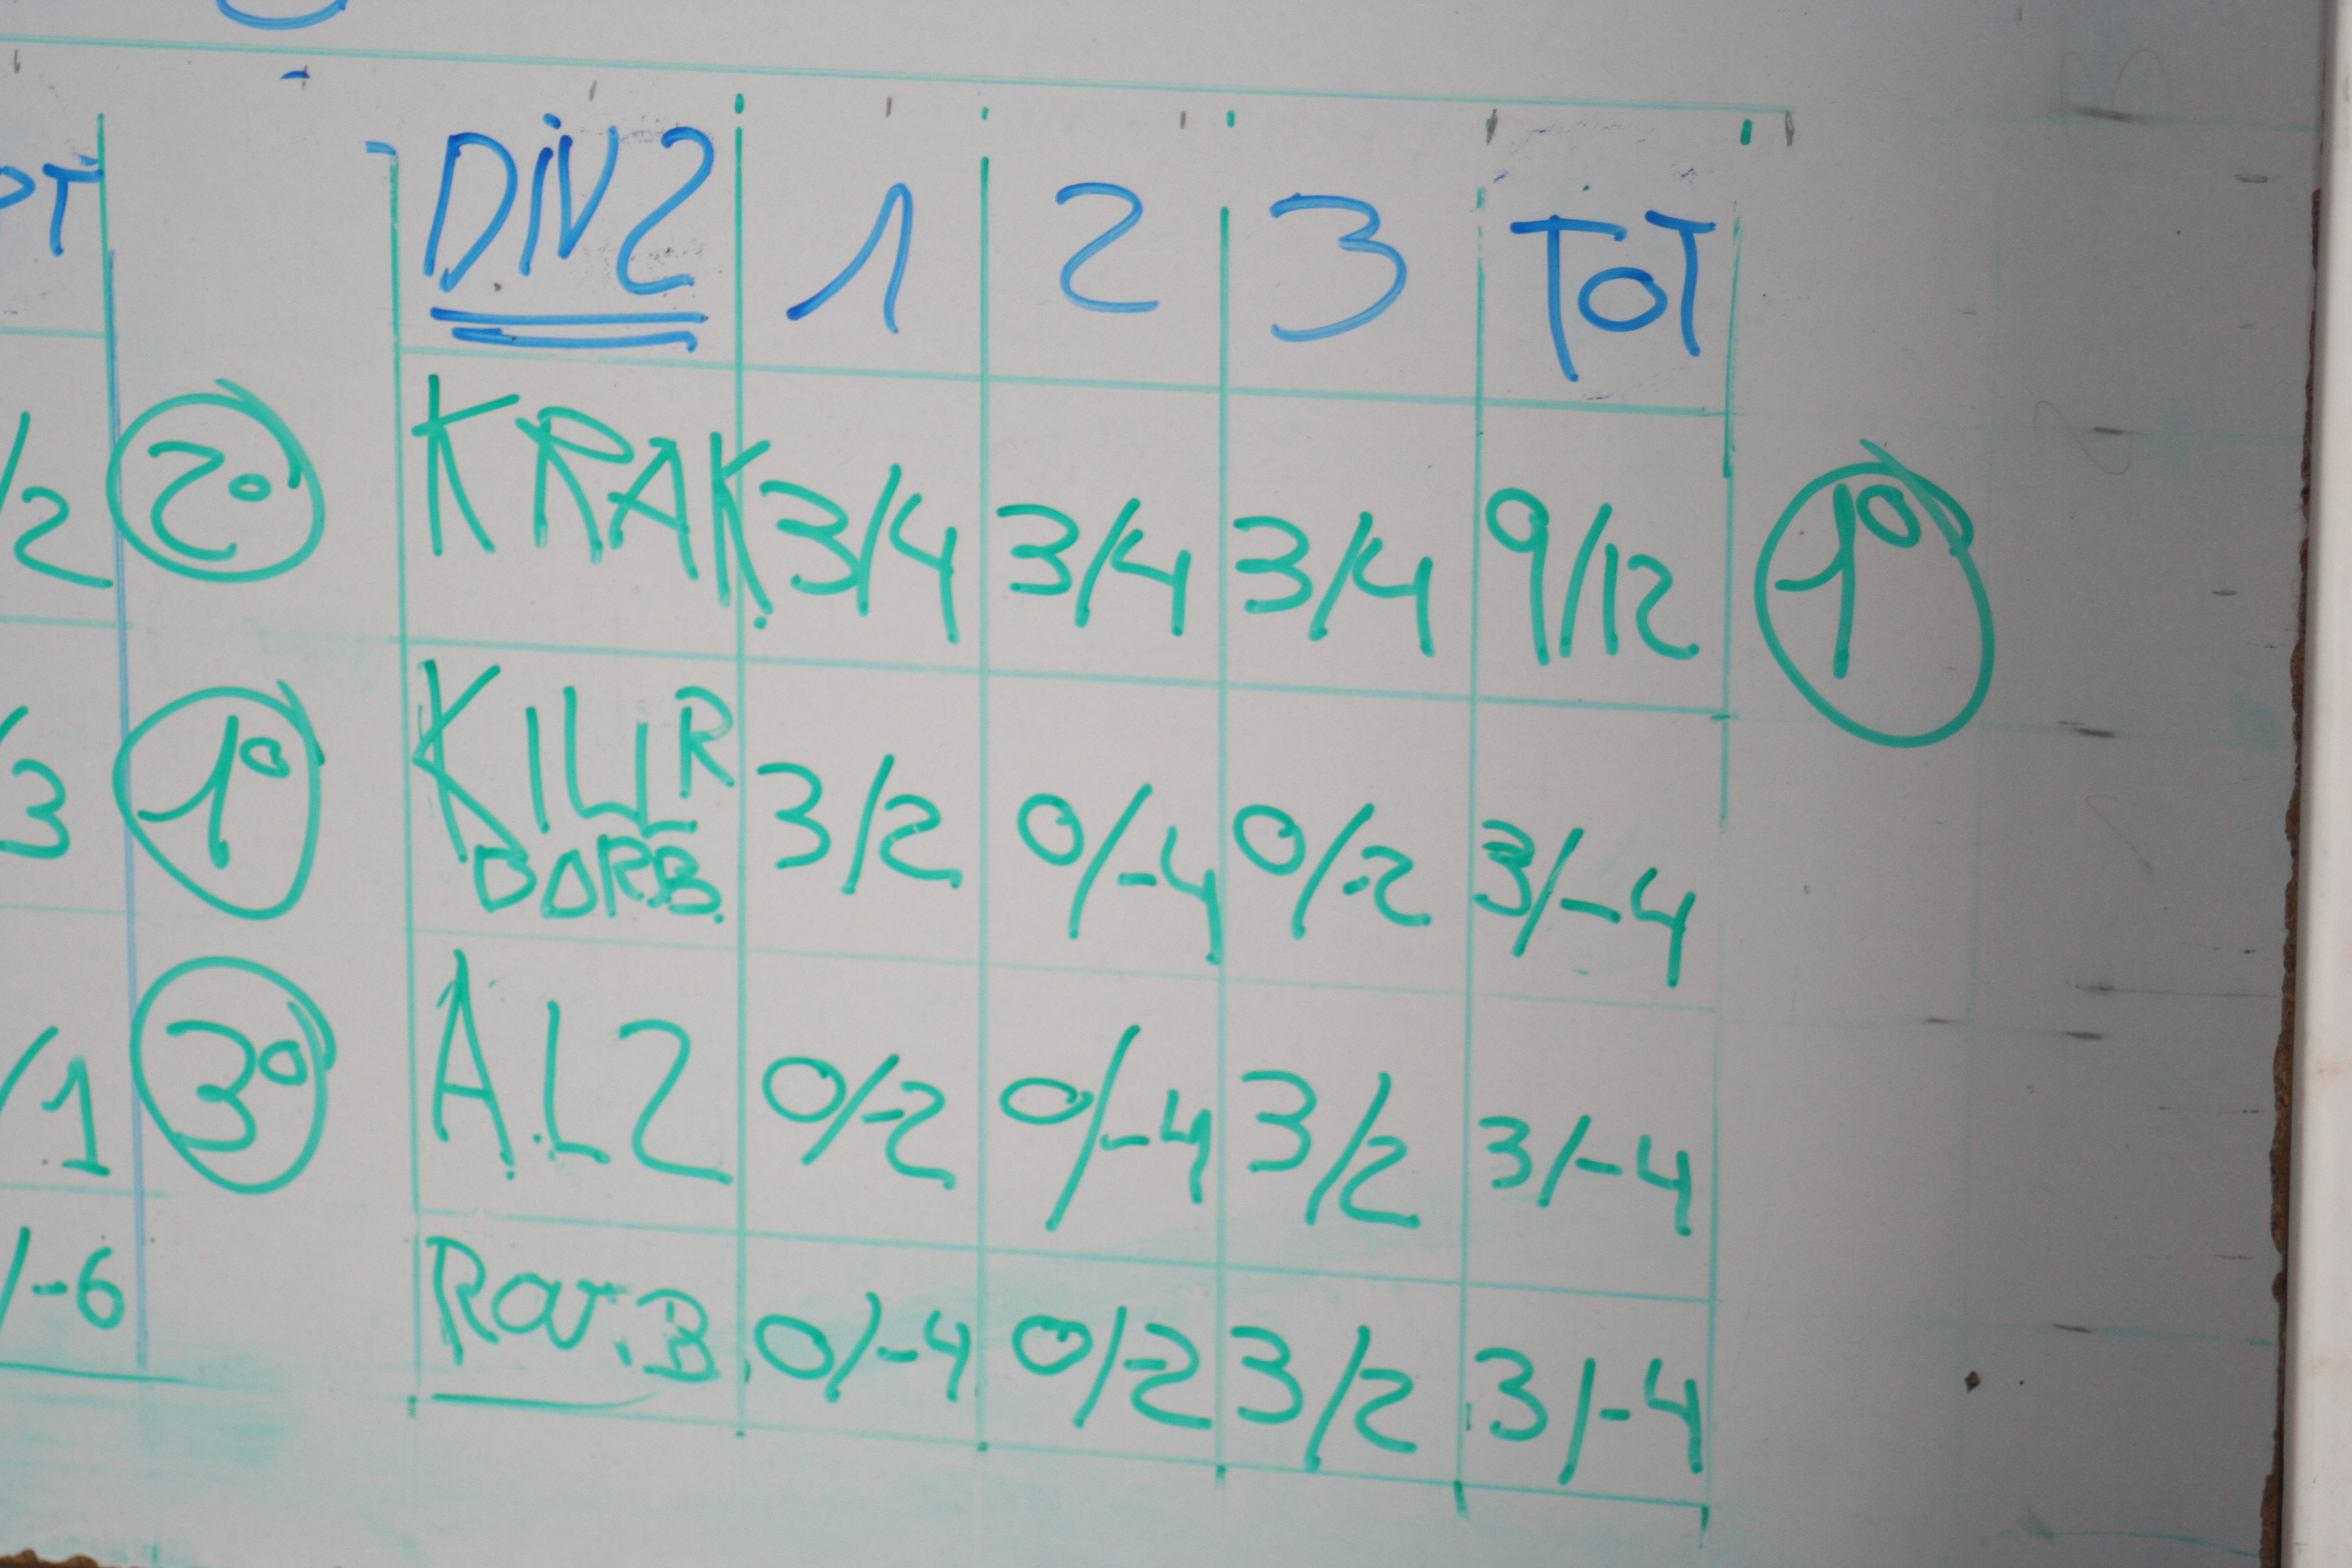 PT
DIV2 1 2 3 TOT
/2 2° KRAK. 3/4 3/4 3/4 9/12 1°
/3 1° 3/2 0/-4 0/-2 3/-4
/1 3° A.L2 0/-2 0/-4 3/2 3/-4
/-6 0/-4 0/-2 3/2 3/-4